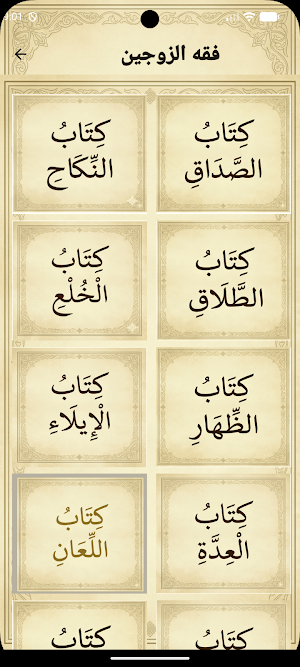 فقه الزوجين
كِتَابُ
الصَّدَاقِ
كِتَابُ
النِّكَاحِ
كِتَابُ
الطَّلَاقِ
كِتَابُ
الْخُلْعِ
كِتَابُ
الظِّهَارِ
كِتَابُ
الْإِيلَاءِ
كِتَابُ
الْعِدَّةِ
كِتَابُ
اللِّعَانِ
كِتَابُ
كِتَابُ